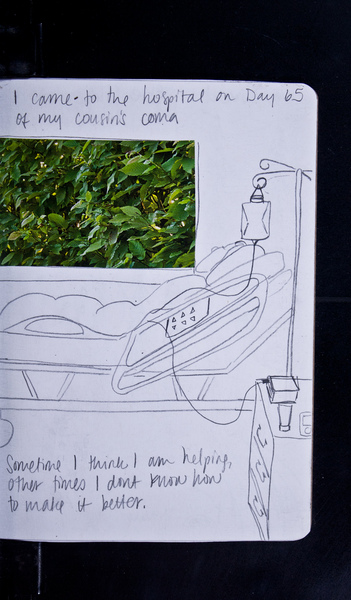 I came to the hospital on Day 65
of my cousin's coma
Sometime I think I am helping,
other times I dont know how
to make it better.